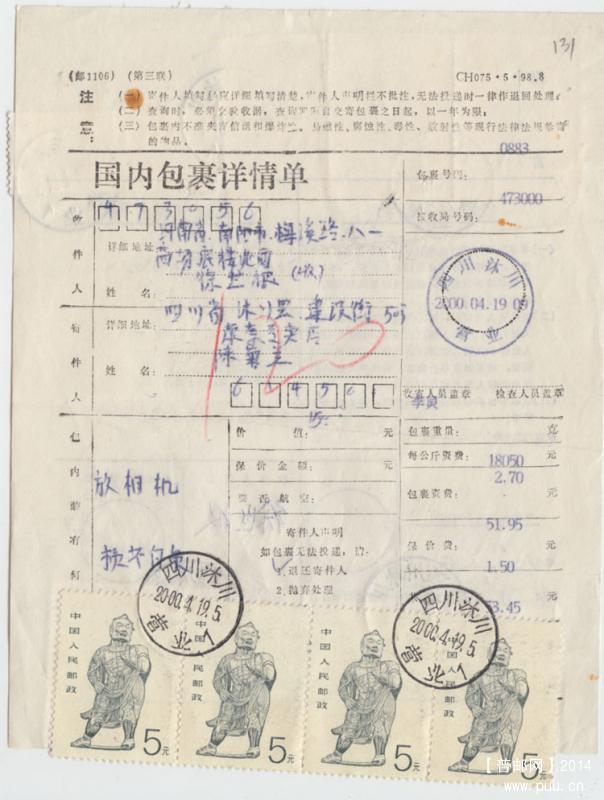 131
(邮1106) (第三联)
CH075·5·98.8
注意:
(一) 寄件人填写 应详细填写清楚,寄件人声明栏不批注,无法投递时一律作退回处理;
(二) 查询时,必须交验收据,查询 自交寄包裹之日起,以一年为限;
(三) 包裹内不准夹寄信函和爆炸 、易燃性、腐蚀性、毒性、放射性等现行法律法规禁寄的物品。
0883
国内包裹详情单
包裹号码:
473000
接收局号码:
收件人
473056
详细地址:
河南省 南阳市 梅溪路 八一
姓名:
四川沐川
2000.04.19 09
营业
寄件人
详细地址:
四川省 沐川县 建设街
姓名:
收寄人员盖章 检查人员盖章
价值: 元
包裹重量: 克
保价金额: 元
每公斤资费: 元
18050
2.70
是否航空:
包裹资费: 元
51.95
寄件人声明
如包裹无法投递,请:
1.退还寄件人
2.抛弃处理
保价费: 元
1.50
53.45
包内装有何
放相机
四川沐川
2000.4.19.5
营业
四川沐川
2000.4.19.5
营业
中国人民邮政
5元
中国人民邮政
5元
中国人民邮政
5元
中国人民邮政
5元
【普邮网】2014
www.puu.cn